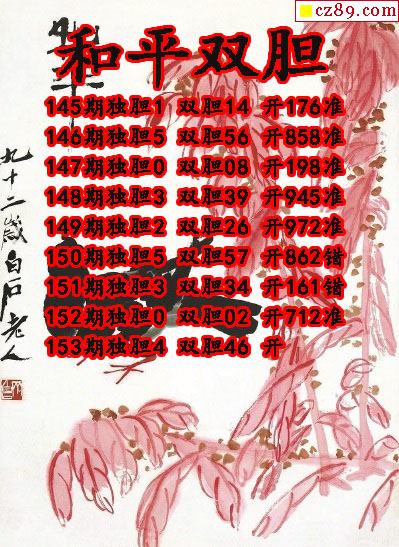 cz89.com
和平
和平双胆
145期独胆1 双胆14 开176准
146期独胆5 双胆56 开858准
147期独胆0 双胆08 开198准
148期独胆3 双胆39 开945准
149期独胆2 双胆26 开972准
150期独胆5 双胆57 开862错
151期独胆3 双胆34 开161错
152期独胆0 双胆02 开712准
153期独胆4 双胆46 开
九十二岁白石老人